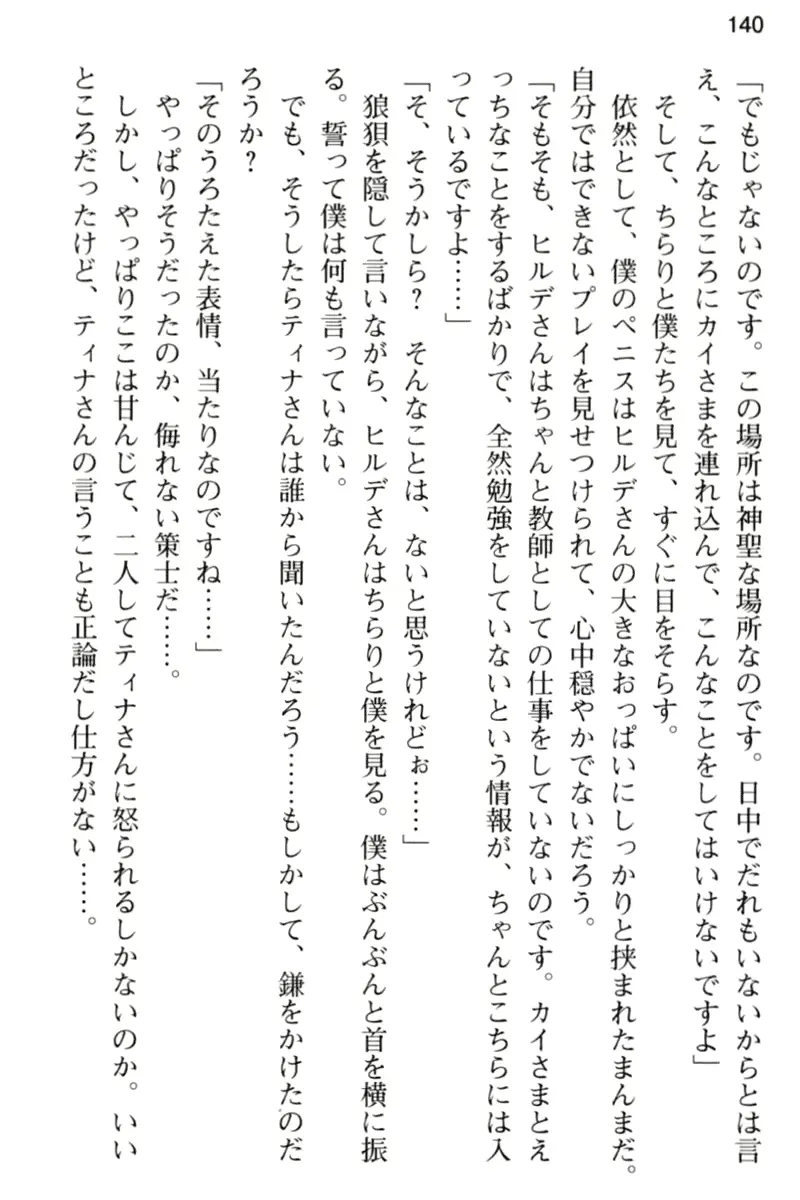 140
「でもじゃないのです。この場所は神聖な場所なのです。日中でだれもいないからとは言
え、こんなところにカイさまを連れ込んで、こんなことをしてはいけないですよ」
そして、ちらりと僕たちを見て、すぐに目をそらす。
依然として、僕のペニスはヒルデさんの大きなおっぱいにしっかりと挟まれたまんまだ。
自分ではできないプレイを見せつけられて、心中穏やかでないだろう。
「そもそも、ヒルデさんはちゃんと教師としての仕事をしていないのです。カイさまとえ
っちなことをするばかりで、全然勉強をしていないという情報が、ちゃんとこちらには入
っているですよ……」
「そ、そうかしら？　そんなことは、ないと思うけれどぉ……」
狼狽を隠して言いながら、ヒルデさんはちらりと僕を見る。僕はぶんぶんと首を横に振
る。誓って僕は何も言っていない。
でも、そうしたらティナさんは誰から聞いたんだろう……もしかして、鎌をかけたのだ
ろうか？
「そのうろたえた表情、当たりなのですね……」
やっぱりそうだったのか、侮れない策士だ……。
しかし、やっぱりここは甘んじて、二人してティナさんに怒られるしかないのか。いい
ところだったけど、ティナさんの言うことも正論だし仕方がない……。